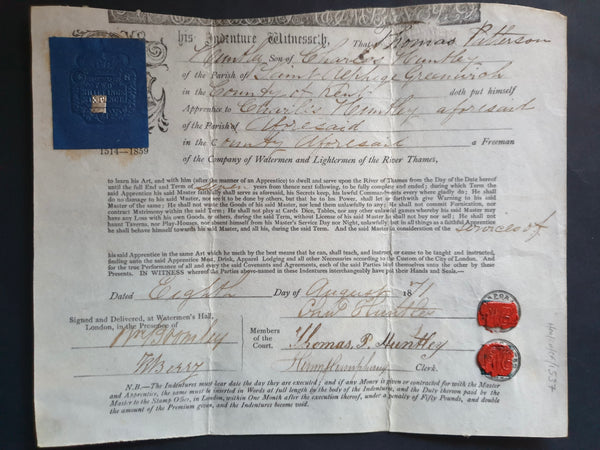 his Indenture Witnesseth, That Thomas Patterson
Huntley Son of Charles Huntley
of the Parish of Saint Alphage Greenwich
in the County of Kent doth put himself
Apprentice to Charles Huntley aforesaid
of the Parish of Aforesaid
in the County Aforesaid a Freeman
of the Company of Watermen and Lightermen of the River Thames,
1514—1859
to learn his Art, and with him (after the manner of an Apprentice) to dwell and serve upon the River of Thames from the Day of the Date hereof
until the full End and Term of seven years from thence next following, to be fully complete and ended; during which Term the
said Apprentice his said Master faithfully shall serve as aforesaid, his Secrets keep, his lawful Commandments every where gladly do; He shall
do no damage to his said Master, nor see it to be done by others, but that he to his Power, shall let or forthwith give Warning to his said
Master of the same; He shall not waste the Goods of his said Master, nor lend them unlawfully to any; He shall not commit Fornication, nor
contract Matrimony within the said Term; He shall not play at Cards, Dice, Tables, nor any other unlawful games whereby his said Master may
have any Loss with his own Goods, or others, during the said Term, without License of his said Master he shall not buy nor sell; He shall not
haunt Taverns, nor Play Houses, nor absent himself from his Master's Service Day nor Night, unlawfully; but in all things as a faithful Apprentice
he shall behave himself towards his said Master, and all his, during the said Term. And the said Master in consideration of the services of
his said Apprentice in the same Art which he useth by the best means that he can, shall teach, and instruct, or cause to be taught and instructed,
finding unto his said Apprentice Meat, Drink, Apparel Lodging and all other Necessaries according to the Custom of the City of London. And
for the true Performance of all and every the said Covenants and Agreements, each of the said Parties bind themselves unto the other by these
Presents. IN WITNESS whereof the Parties above-named to these Indentures interchangeably have put their Hands and Seals.—
Dated Eighth Day of August 1871
Chas Huntley
Signed and Delivered, at Watermen's Hall,
London, in the Presence of
Members
of the
Court.
Thomas P. Huntley
Clerk.
N.B.—The Indentures must bear date the day they are executed; and if any Money is given or contracted for with the Master
and Apprentice, the same must be inserted in Words at full length in the body of the Indentures, and the Duty thereon paid by the
Master to the Stamp Office, in London, within One Month after the execution thereof, under a penalty of Fifty Pounds, and double
the amount of the Premium given, and the Indentures become void.